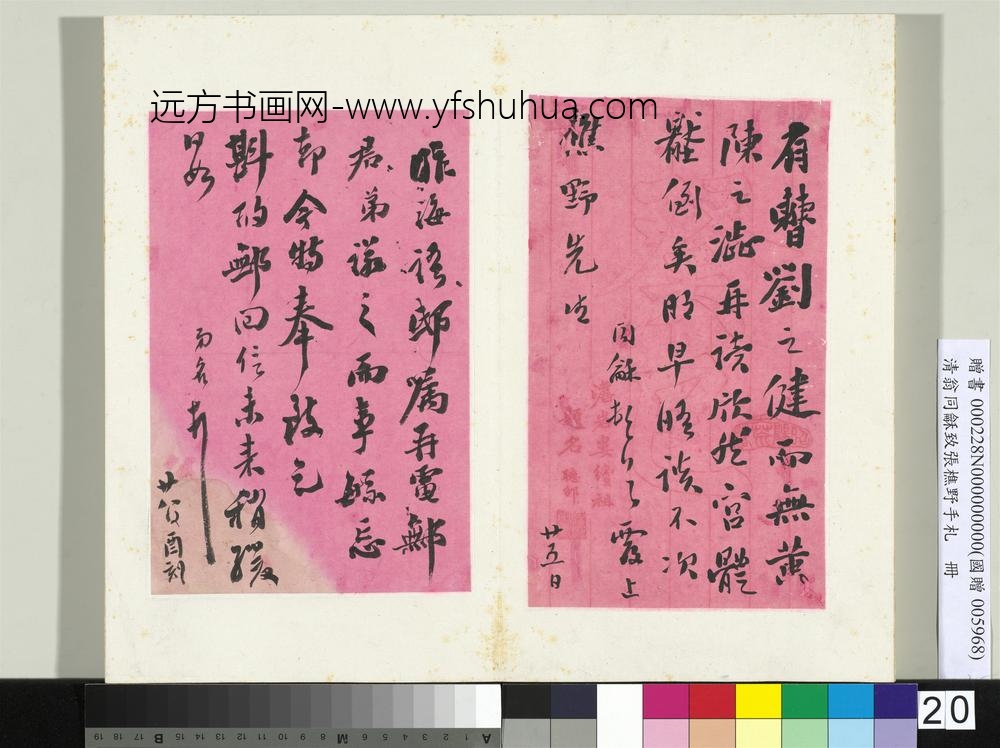 远方书画网-www.yfshuhua.com
有韓劉之健而無黃
陳之澀再讀欣然宫體
壓倒矣明早晤談不次
樵野先生
同龢頓首 霞上
廿五日
昨海語邸屬再電鄰
君弟議之而事
卽令特奉致乞
斟酌鄰回信未來稍緩
日如
兩名
廿八日酉刻
贈書 000228N000000000(國贈 005968)
清翁同龢致張樵野手札 冊
20